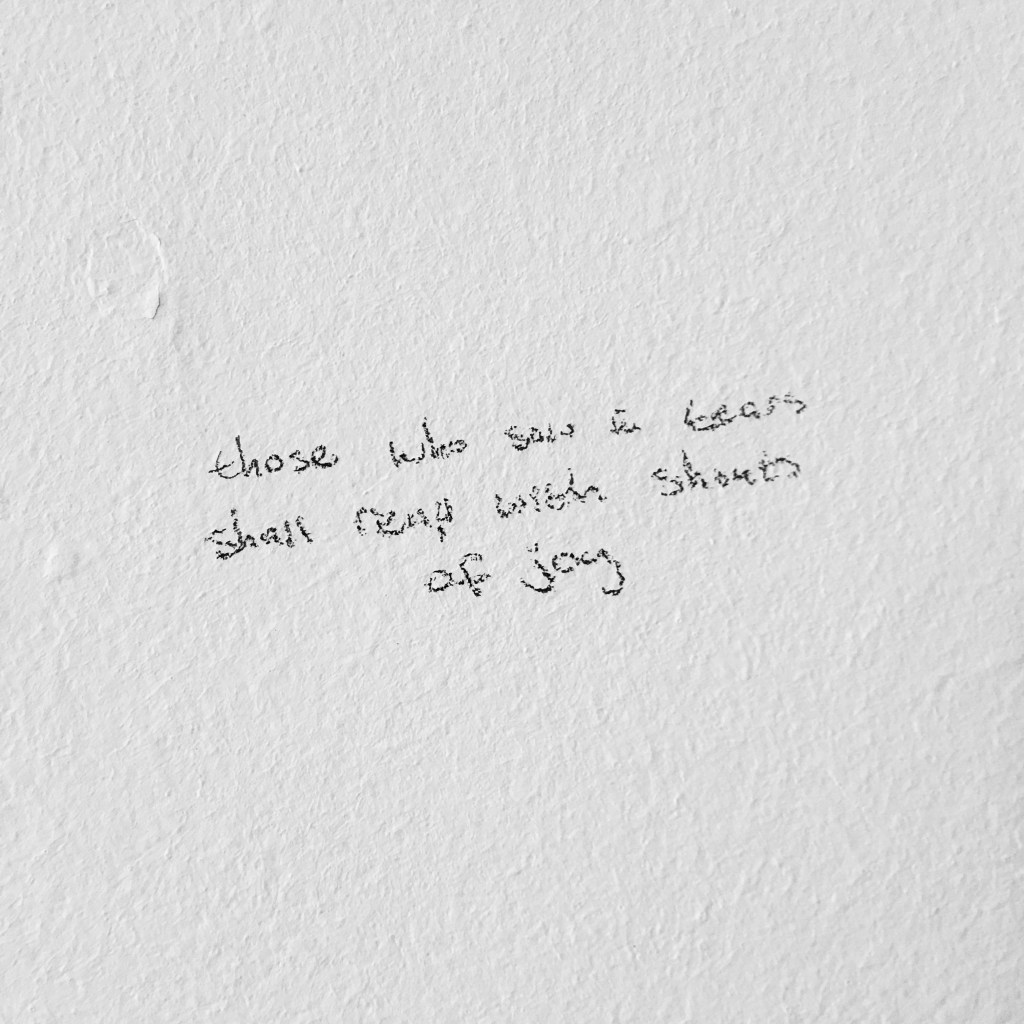 those who sow in tears
shall reap with shouts
of joy